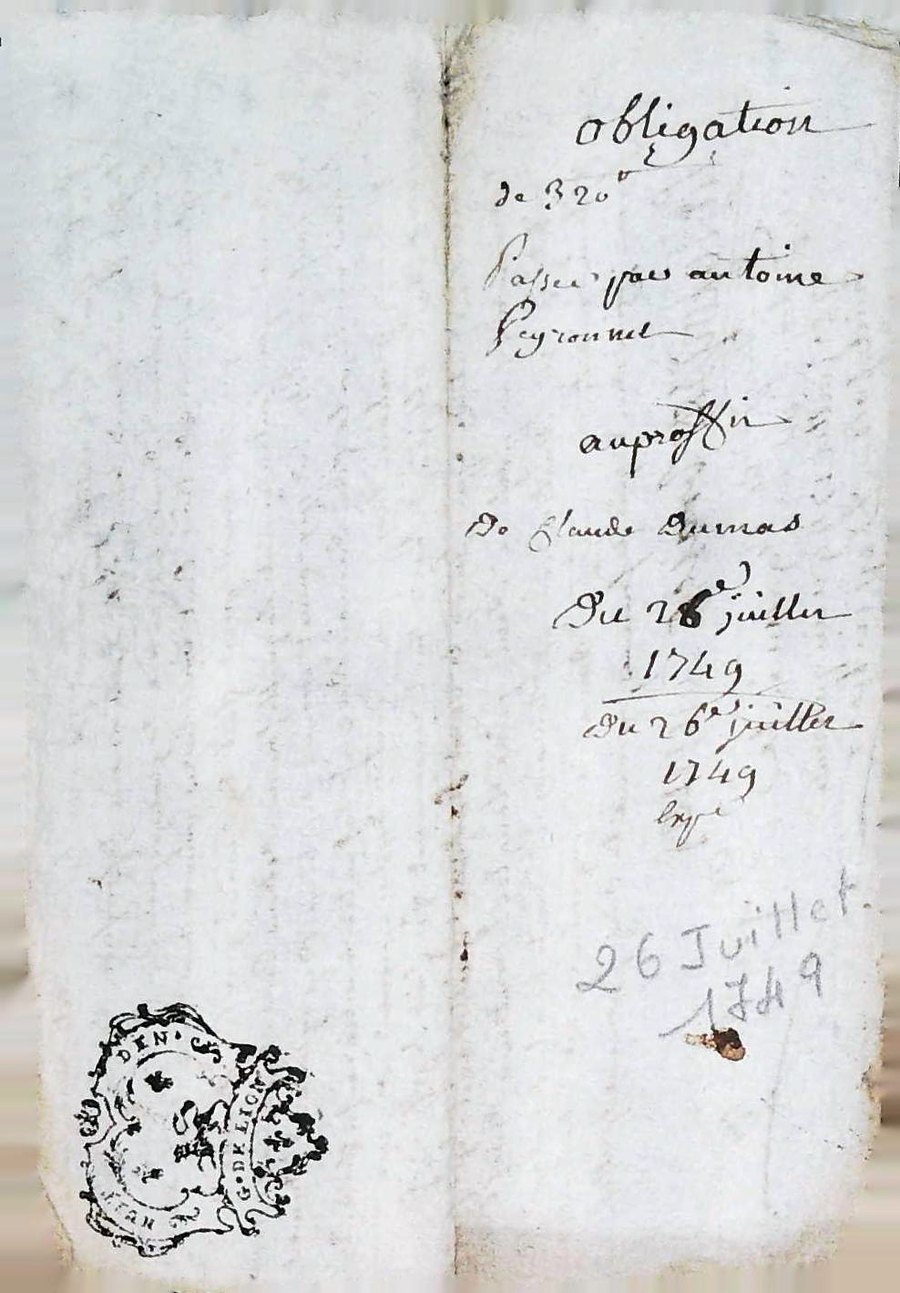 obligation
de 320ᵗᵗ
Passee par antoine
Peyronnet
au proffit
De Claude Dumas
Du 26ᵉ juillet
1749
Du 26ᵉ juillet
1749
expᵉ
26 Juillet.
1749
DEN.
G. DE LION
HUIT